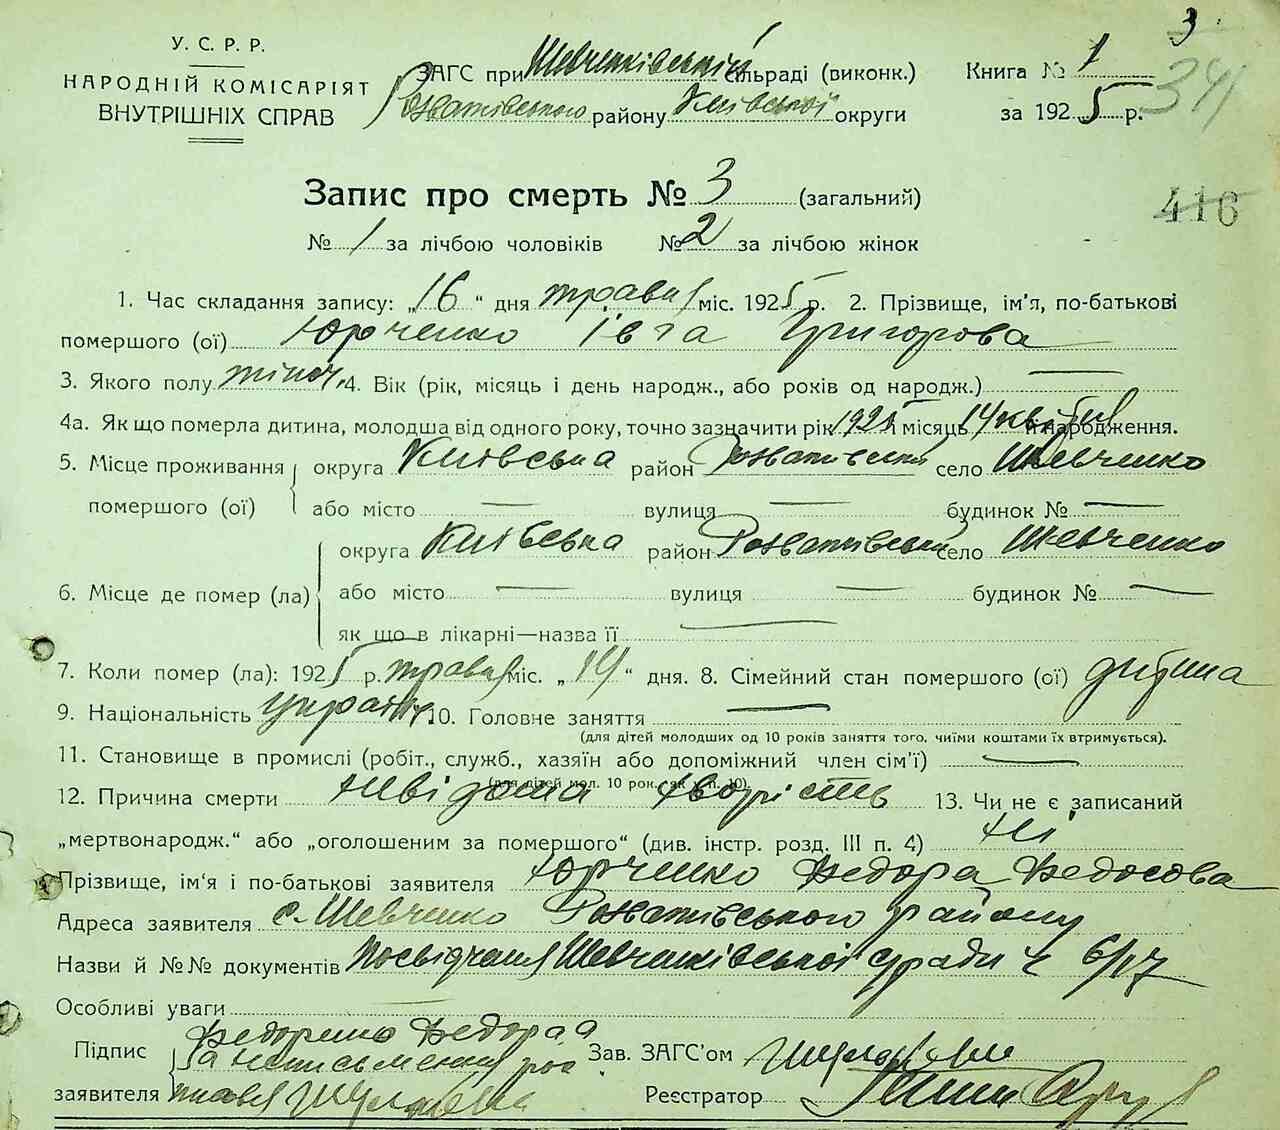 3
У. С. Р. Р.
НАРОДНІЙ КОМІСАРІЯТ
ВНУТРІШНІХ СПРАВ
ЗАГС при Шевченківській сільраді (виконк.)
Розважівського району Київської округи
Книга № 1
за 1925 р.
341
416
Запис про смерть № 3 (загальний)
№ 1 за лічбою чоловіків № 2 за лічбою жінок
1. Час складання запису: „16" дня травня міс. 1925 р. 2. Прізвище, ім'я, по-батькові
помершого (ої) Юрченко Івга Григорова
3. Якого полу жіноч. 4. Вік (рік, місяць і день народж., або років од народж.) —
4а. Як що померла дитина, молодша від одного року, точно зазначити рік 1925 і місяць 14 квітня народження.
5. Місце проживання помершого (ої) округа Київська район Розважівський село Шевченко
або місто — вулиця — будинок № —
6. Місце де помер (ла) округа Київська район Розважівський село Шевченко
або місто — вулиця — будинок № —
як що в лікарні—назва її —
7. Коли помер (ла): 1925 р. травня міс. „14" дня. 8. Сімейний стан помершого (ої) дитина
9. Національність україн. 10. Головне заняття —
(для дітей молодших од 10 років заняття того, чиїми коштами їх втримується).
11. Становище в промислі (робіт., служб., хазяїн або допоміжний член сім'ї) —
(для дітей мол. 10 рок., як п. 10)
12. Причина смерти невідома хворість 13. Чи не є записаний
„мертвонародж." або „оголошеним за помершого" (див. інстр. розд. III п. 4) ні
Прізвище, ім'я і по-батькові заявителя Юрченко Федора Федосова
Адреса заявителя с. Шевченко Розважівського району
Назви й №№ документів Посвідчення Шевченківської сради ч 6/17
Особливі уваги —
Підпис заявителя Федоренко Федора а
за неписьменну
Зав. ЗАГС'ом
Реєстратор